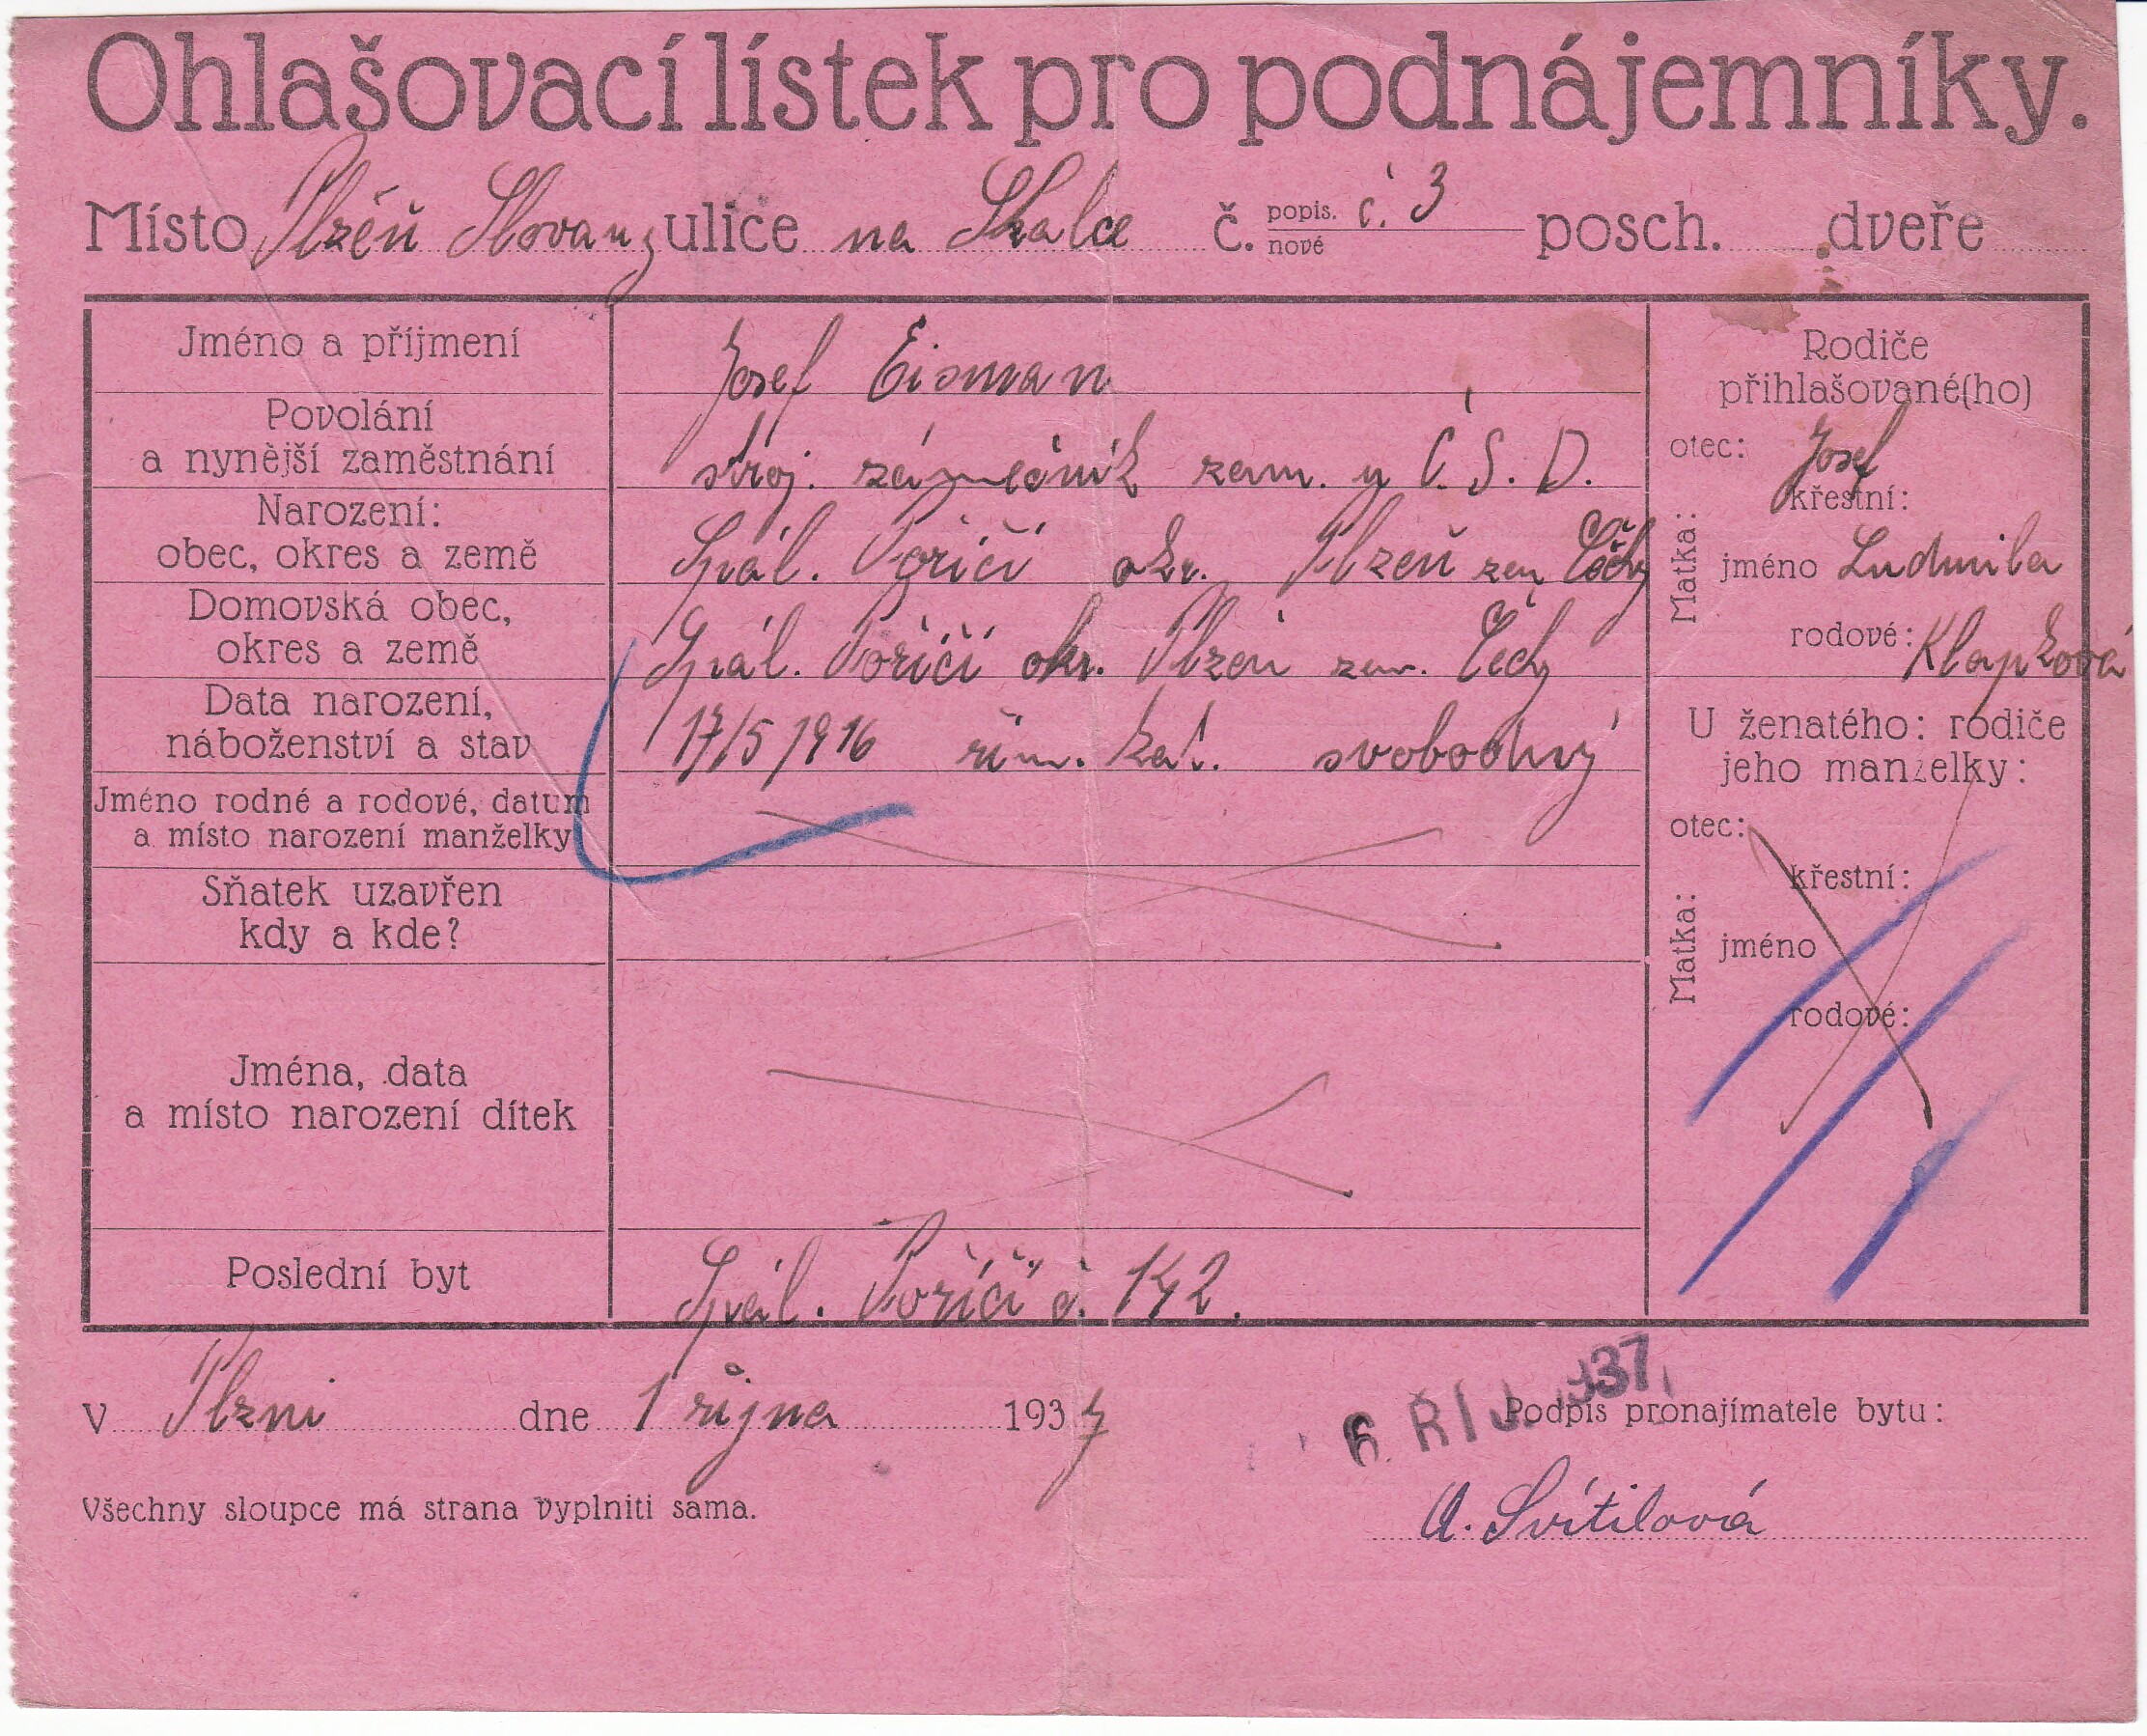 Ohlašovací lístek pro podnájemníky.
Místo Plzéň Slovany ulice na Skalce č. popis. nové č. 3 posch. dveře
Jméno a příjmení Josef Eisman
Povolání a nynější zaměstnání stroj. zámečník zam. u Č. S. D.
Narození: obec, okres a země Spál. Poříčí okr. Plzeň zem Čechy
Domovská obec, okres a země Spál. Poříčí okr. Plzeň zem. Čechy
Data narození, náboženství a stav 17/5 1916 řím. kat. svobodný
Jméno rodné a rodové, datum a místo narození manželky
Sňatek uzavřen kdy a kde?
Jména, data a místo narození dítek
Poslední byt Spál. Poříčí č. 142.
Rodiče
přihlašované(ho)
otec: Josef
Matka:
křestní:
jméno Ludmila
rodové: Klapková
U ženatého: rodiče
jeho manželky:
otec:
Matka:
křestní:
jméno
rodové:
V Plzni dne 1 října 1937
6. ŘÍJ. 1937
Podpis pronajímatele bytu:
Všechny sloupce má strana vyplniti sama.
A. Svítilová